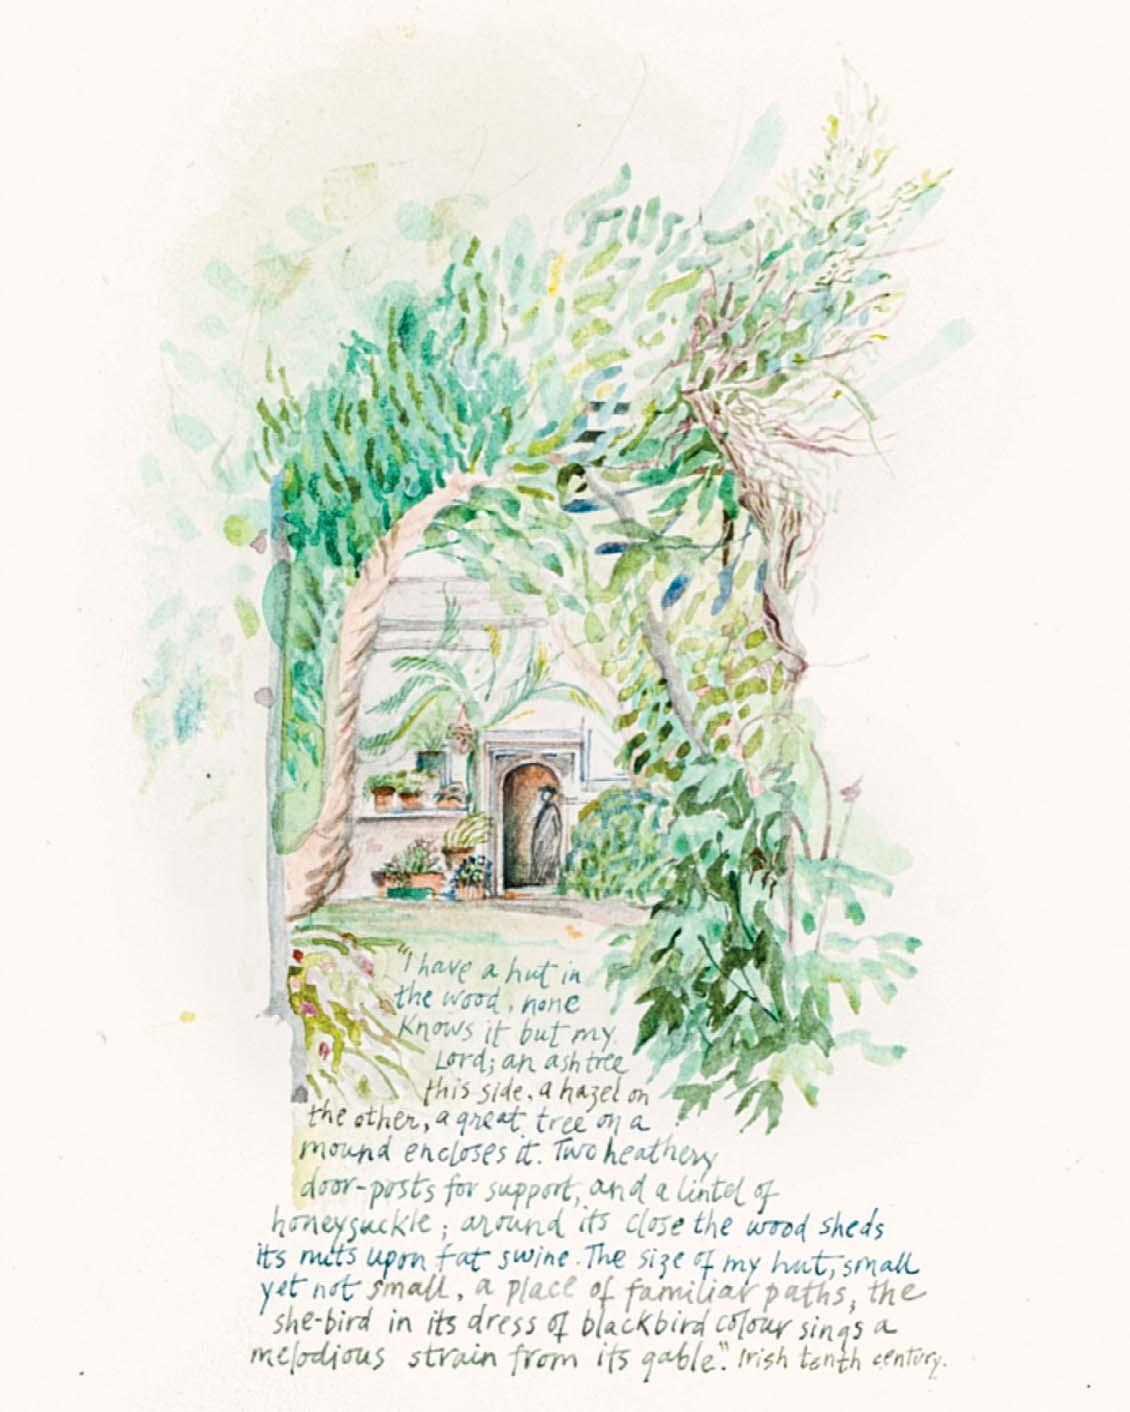 "I have a hut in
the wood, none
knows it but my
Lord; an ash tree
this side, a hazel on
the other, a great tree on a
mound encloses it. Two heathery
door-posts for support, and a lintel of
honeysuckle; around its close the wood sheds
its nuts upon fat swine. The size of my hut, small
yet not small, a place of familiar paths; the
she-bird in its dress of blackbird colour sings a
melodious strain from its gable." Irish tenth century.